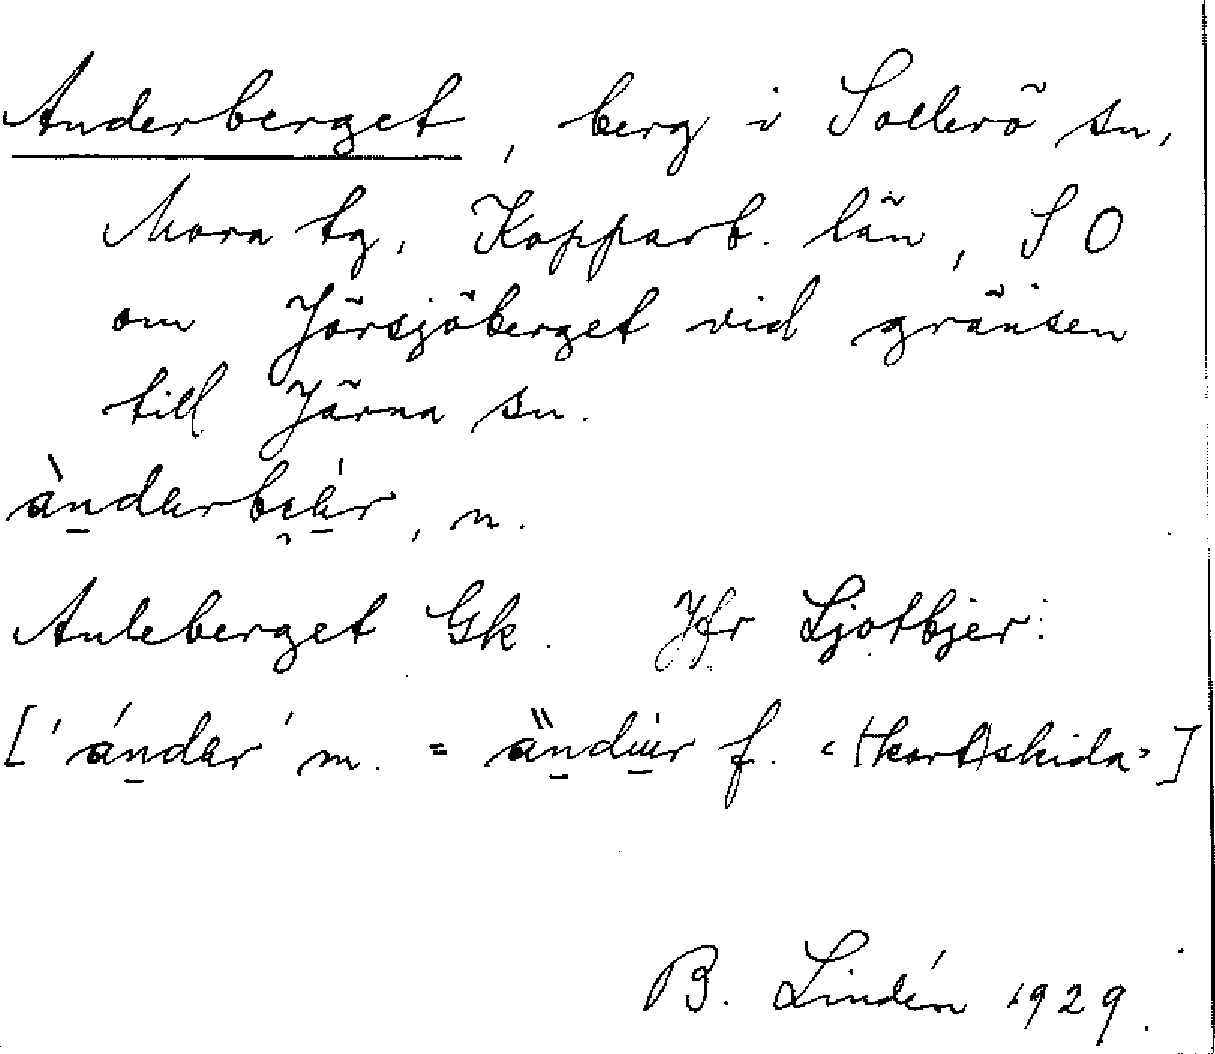 Anderberget, berg i Sollerö sn,
Mora tg, Kopparb. län, SO
om Jörsjöberget vid gränsen
till Järna sn.
, n.
Anleberget Gk. Jfr Ljotbjer:
[' ' m. = f. "(kort)skida"]
B. Lindén 1929.